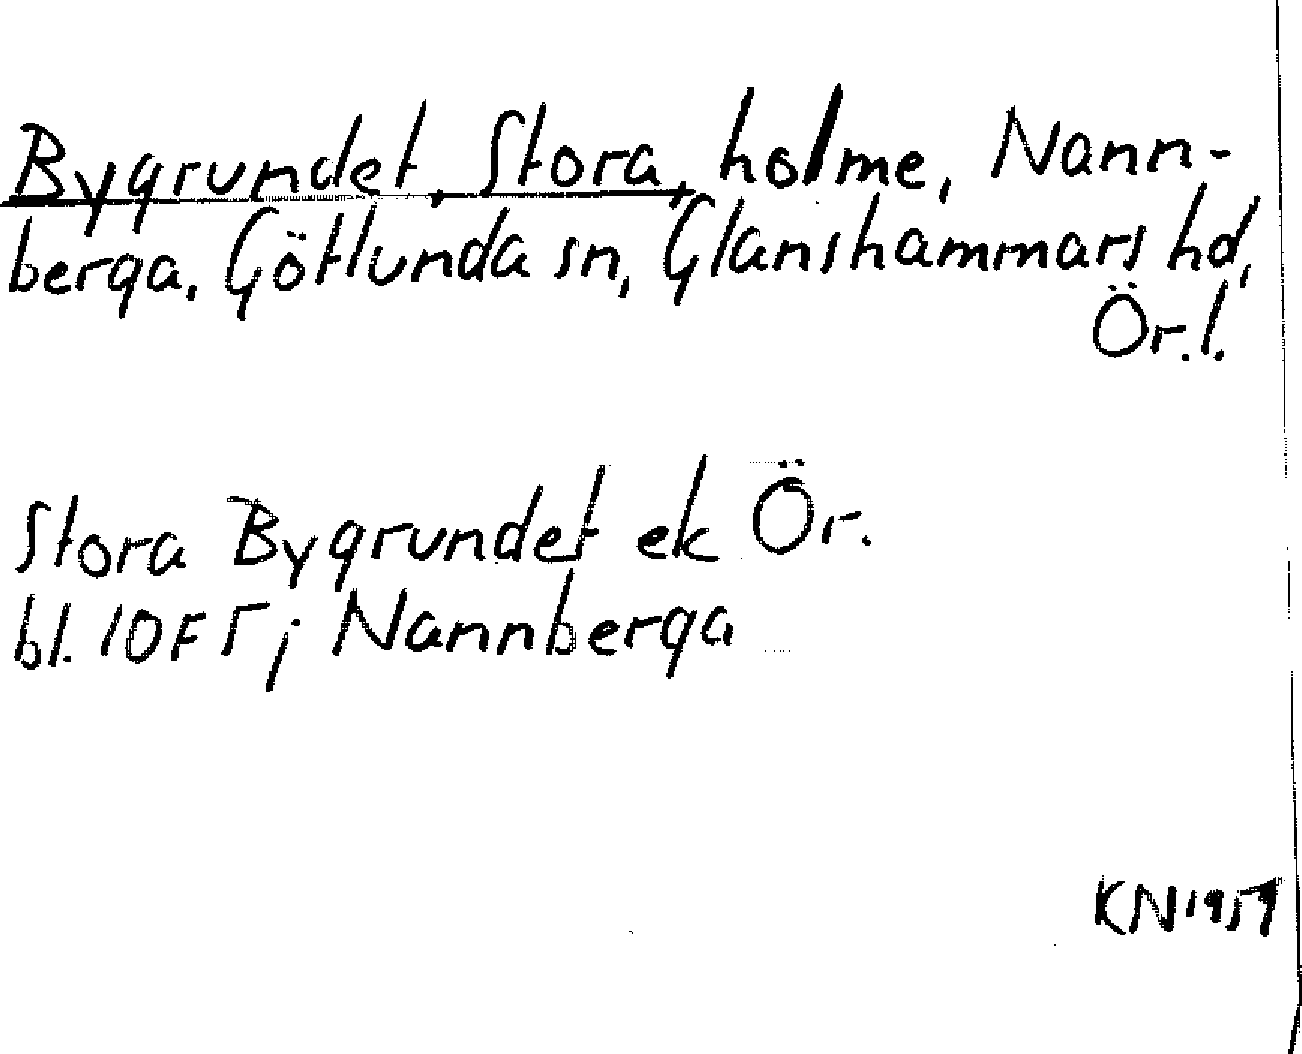 Bygrundet, Stora, holme, Nann-
berga, Götlunda sn, Glanshammars hd,
Ör.l.
Stora Bygrundet ek Ör.
bl. 10F5; Nannberga
KN 1957